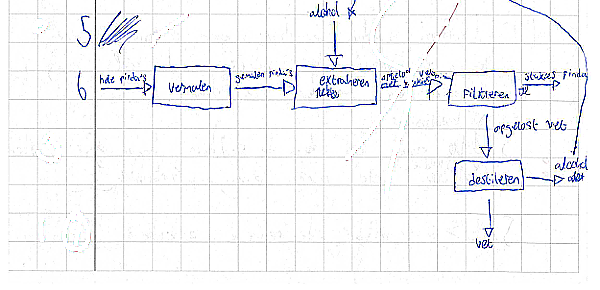 alcohol
5
6
hele pinda's
vermalen
gemalen pinda's
extraheren
opgelost vet
Filtreren
stukjes pinda
opgelost vet
destileren
alcohol
vet